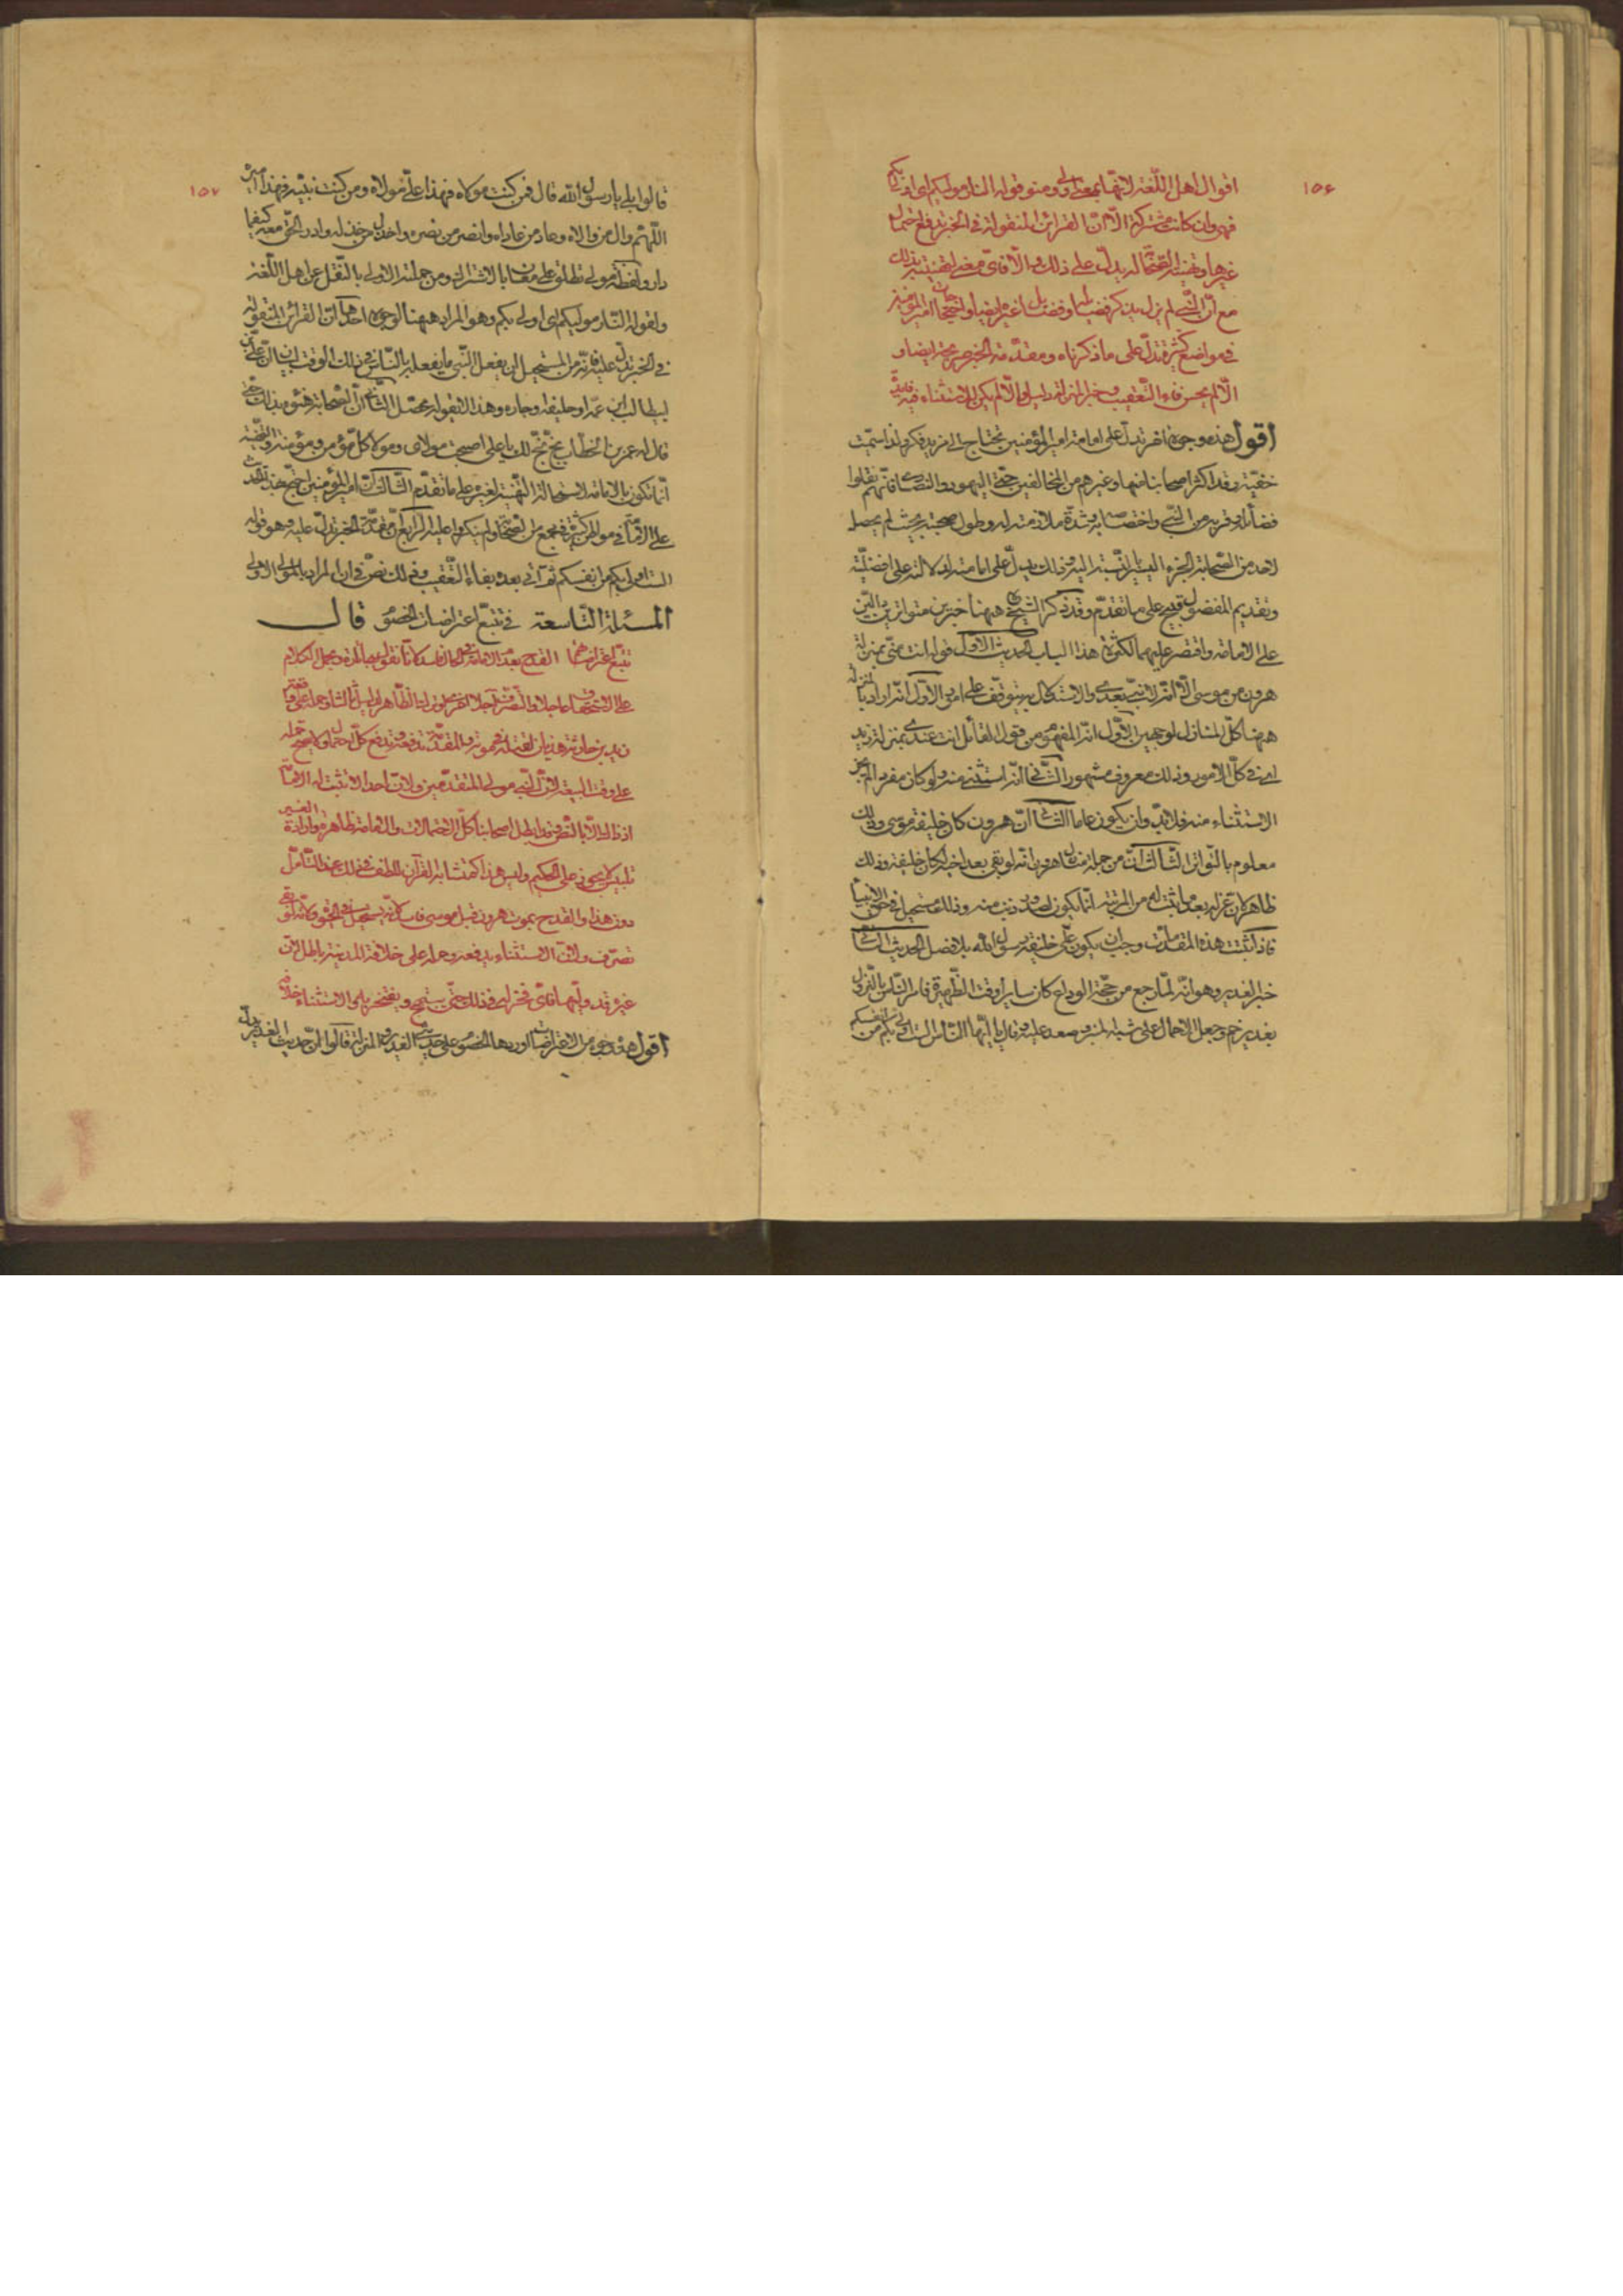 ١٥۶
اقوال اهل اللغة لانها بمعنى اولى ومنه قوله النار موليكم اى اولى بكم
فهى وان كانت مشتركة الا ان القرائن المنقولة فى الخبر تدفع احتمال
غيرها وتهنية الصحابة له يدل على ذلك والا فاى معنى لتهنيته بذلك
مع ان النبى لم يزل يذكر فضايله وفضايل غيره ايضا واحتجاجات امير المؤمنين
فى مواضع كثيرة تدل على ما ذكرناه ومقدمة الخبر تدل عليه ايضا و
الا لم يحسن فاء التعقيب وخبر المنزلة والا لم يكن للاستثناء فيه فايدة
اقول هذه وجوه اخر تدل على امامة امير المؤمنين تحتاج الى مزيد فكر ولذا سميت
خفية وقد اكثر اصحابنا منها وغيرهم من المخالفين حتى اليهود والنصارى فانهم نقلوا
فضائله وقربه من النبى واختصاصه به وشدة ملازمته له وطول صحبته بحيث لم يحصل
لاحد من الصحابة الجزء اليسير بالنسبة اليه وذلك يدل على امامته لدلالته على افضليته
وتقديم المفضول قبيح على ما تقدم وقد ذكر الشيخ ههنا خبرين متواترين دالين
على الامامة واقتصر عليهما لكثرة هذا الباب الحديث الاول قوله انت منى بمنزلة
هرون من موسى الا انه لا نبى بعدى والاستدلال به يتوقف على امور الاول انه اراد بالمنزلة
ههنا كل المنازل لوجهين الاول انه المفهوم من قول القائل انت عندى بمنزلة زيد
اى فى كل الامور وذلك معروف مشهور الثانى انه استثنى منه ولو كان مفردا لم يجز
الاستثناء منه فلا بد وان يكون عاما الثانى ان هرون كان خليفة موسى وذلك
معلوم بالتواتر الثالث ان من جملة منازل هرون انه لو بقى بعد اخيه لكان خليفته وذلك
ظاهر لان عزله بعد ما ثبت له من المرتبة انما يكون لصدور ذنب منه وذلك مستحيل فى حق الانبياء
فاذا ثبتت هذه المقدمات وجب ان يكون على خليفة رسول الله بلا فصل الحديث الثانى
خبر الغدير وهو انه لما رجع من حجة الوداع كان سايرا وقت الظهيرة فامر الناس بالنزول
بغدير خم وجعل الاحمال على شبه المنبر وصعد عليه وقال يا ايها الناس الست اولى بكم من انفسكم
١٥٧
قالوا بلى يا رسول الله قال فمن كنت مولاه فهذا على مولاه ومن كنت نبيه فهذا اميره
اللهم وال من والاه وعاد من عاداه وانصر من نصره واخذل من خذله وادر الحق معه كيفما
دار ولفظة مولى تطلق على معان بالاشتراك ومن جملتها الاولى بالنقل عن اهل اللغة
ولقوله النار موليكم اى اولى بكم وهو المراد ههنا لوجوه احدها ان القرائن المنقولة
فى الخبر تدل عليه فانه من المستحيل ان يفعل النبى ما يفعله بالناس فى ذلك الوقت لبيان ان على بن
ابيطالب ابن عمه او حليفه وجاره وهذا لا يقوله محصل الثانى ان الصحابة هنؤه بذلك حتى
قال له عمر بن الخطاب بخ بخ لك يا على اصبحت مولاى ومولا كل مؤمن ومؤمنة والتهنية
انما تكون بالامامة لاستحالة التهنية لغيره على ما تقدم الثالث ان امير المؤمنين احتج بهذا الحديث
على الامامة فى مواطن كثيرة فى مجمع من الصحابة ولم ينكروا عليه الرابع ان مقدمة الخبر تدل عليه وهو قوله
الست اولى بكم من انفسكم ثم اتى بعده بفاء التعقيب وذلك نص فى ان المراد بالمولى الاولى
المسئلة التاسعة فى تتبع اعتراضات الخصوم قال
تتبع اعتراضها القدح بعد الامامة فى الحال فاسد لانا نقول بها
على الاستحقاق عاجلا والتصرف آجلا
زيد بن حارثة هذيان لقتله فى موته والمقدمة تدفعه وتدفع كل احتمال ولا يصح حمله
على وقت البيعة لان النبى مولى المتقدمين ولان احدا لا تثبت له الامامة
اذ ذاك الا بالنص وقد ابطل اصحابنا كل الاحتمالات والامامة ظاهرة وارادة الغير
تلبيس لا يجوز على الحكيم وليس هذا كمتشابه القرآن للطف فى ذلك عند التامل
دون هذا والقدح بموت هرون قبل موسى فاسد
تصرف ولان الاستثناء يدفعه وحمله على خلافة المدينة باطل لان
غيره قد وليها فاى فخر له فى ذلك حتى يبتهج ويفتخر به والاستثناء
اقول هذه وجوه من الاعتراضات اوردها الخصوم على حديثى الغدير والمنزلة قالوا ان حديث الغدير يدل